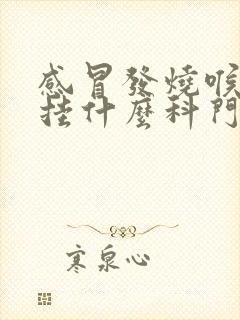 感冒發燒喉
挂什麼科門
寒泉心